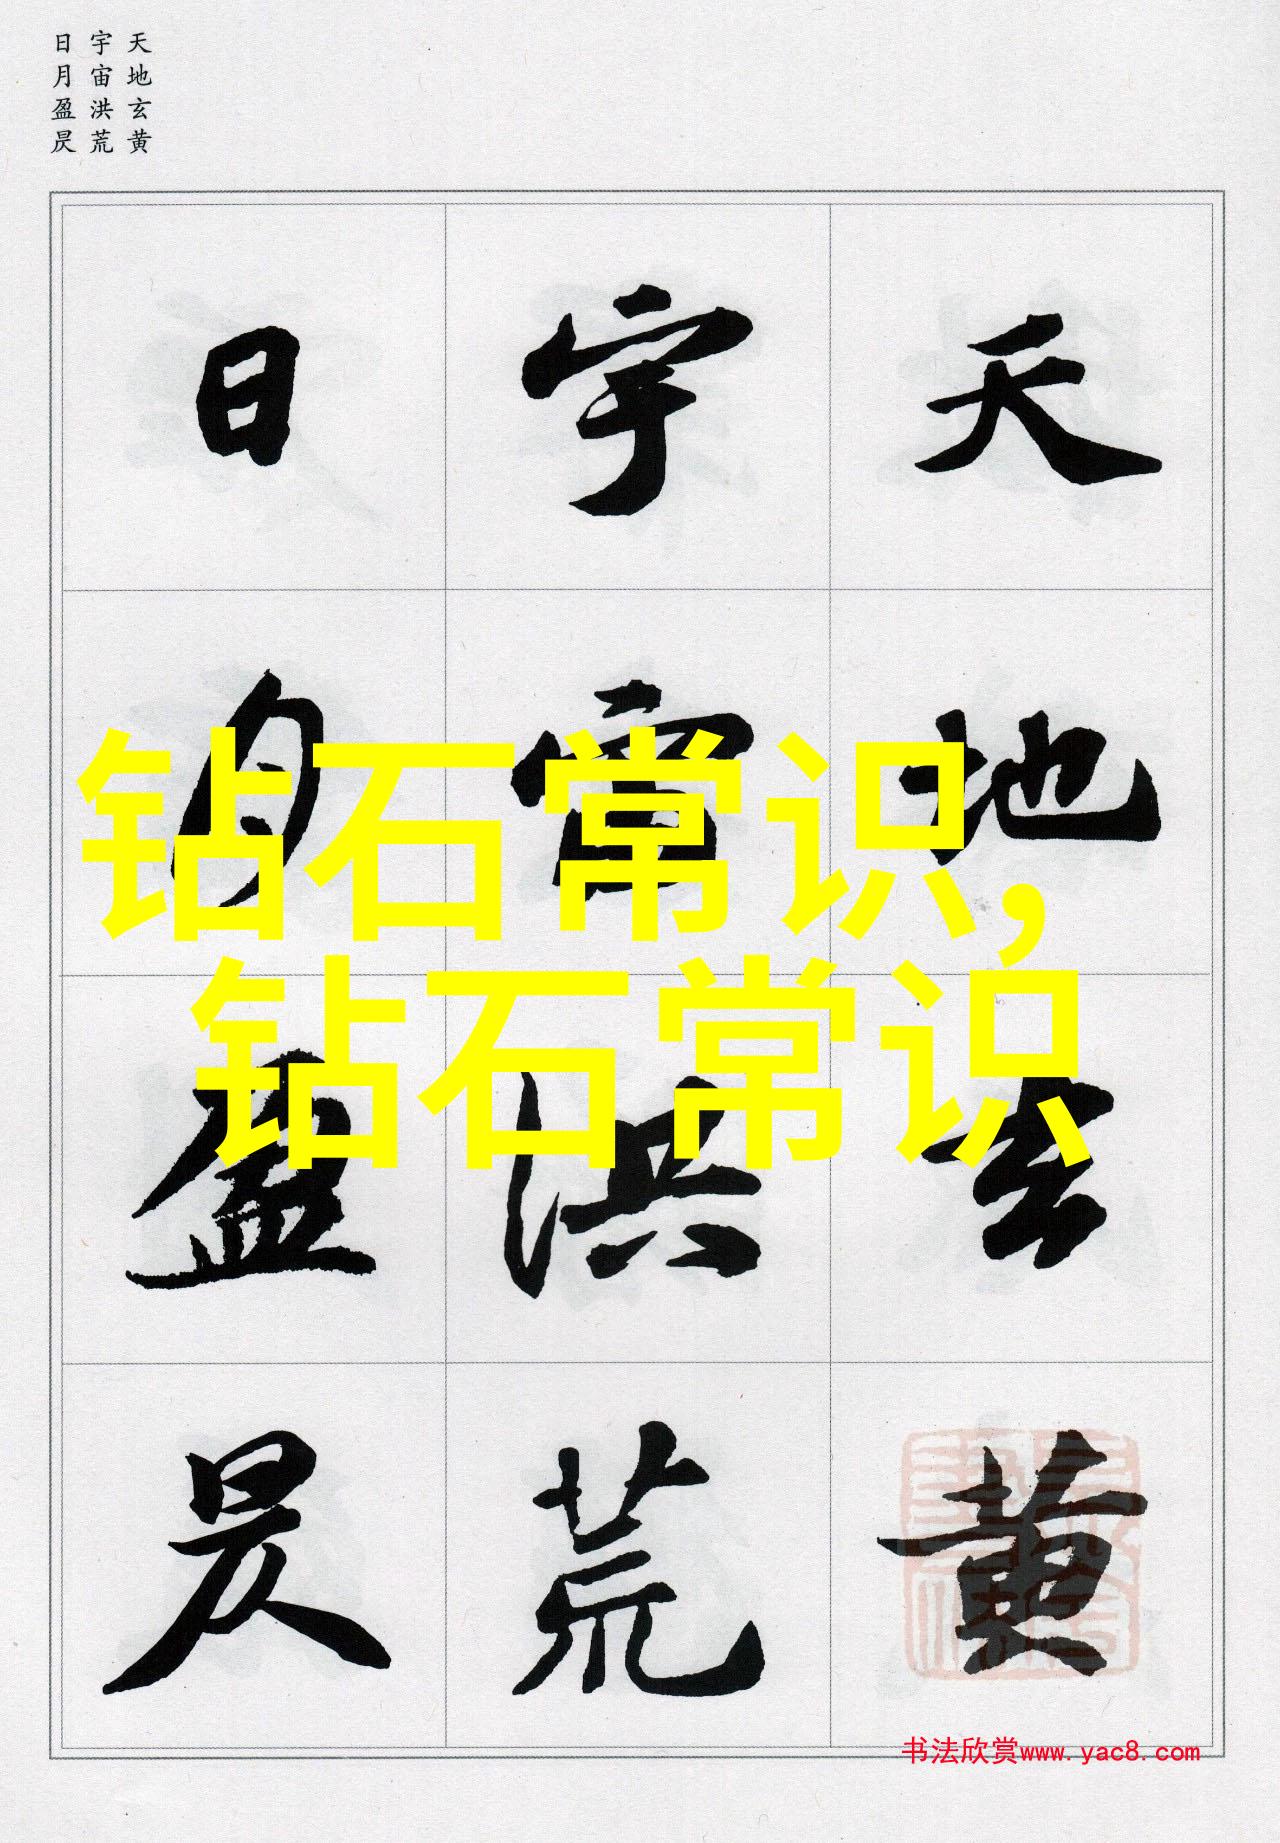 天地玄黄
宇宙洪荒
日月盈昃
天地玄黄
宇宙洪荒
日月盈昃
钻石常识,
钻石常识
书法欣赏www.yac8.com